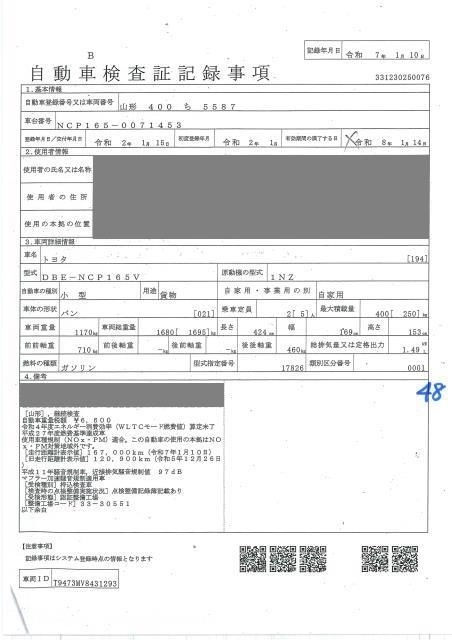 記録年月日 令和 7年 1月 10日
B
自動車検査証記録事項
331230250076
1.基本情報
自動車登録番号又は車両番号 山形 400 ち 5587
車台番号 NCP165-0071453
登録年月日/交付年月日 令和 2年 1月 15日 初度登録年月 令和 2年 1月 有効期間の満了する日 令和 8年 1月 14日
2.使用者情報
使用者の氏名又は名称
使用者の住所
使用の本拠の位置
3.車両詳細情報
車名 トヨタ [194]
型式 DBE-NCP165V 原動機の型式 1NZ
自動車の種別 小型 用途 貨物 自家用・事業用の別 自家用
車体の形状 バン [021] 乗車定員 2[ 5]人 最大積載量 400[ 250]kg
車両重量 1170kg 車両総重量 1680[ 1695]kg 長さ 424cm 幅 169cm 高さ 153cm
前前軸重 710kg 前後軸重 -kg 後前軸重 -kg 後後軸重 460kg 総排気量又は定格出力 1.49
燃料の種類 ガソリン 型式指定番号 17826 類別区分番号 0001
4.備考
48
[山形], 継続検査
自動車重量税額 ¥6,600
令和4年度エネルギー消費効率(WLTCモード燃費値)算定未了
平成27年度燃費基準達成車
使用車種規制(NOx・PM)適合, この自動車の使用の本拠はNO
x・PM対策地域外です。
[走行距離計表示値] 167,000km(令和7年1月10日)
[旧走行距離計表示値] 120,900km(令和5年12月26日
)
平成11年騒音規制車, 近接排気騒音規制値 97dB
マフラー加速騒音規制適用車
[受検種別] 持込検査車
[検査時の点検整備実施状況] 点検整備記録簿記載あり
[受検形態] 認証整備工場
[整備工場コード] 33-30551
以下余白
【注意事項】
記録事項はシステム登録時点の情報となります
車両ID T9473MV8431293